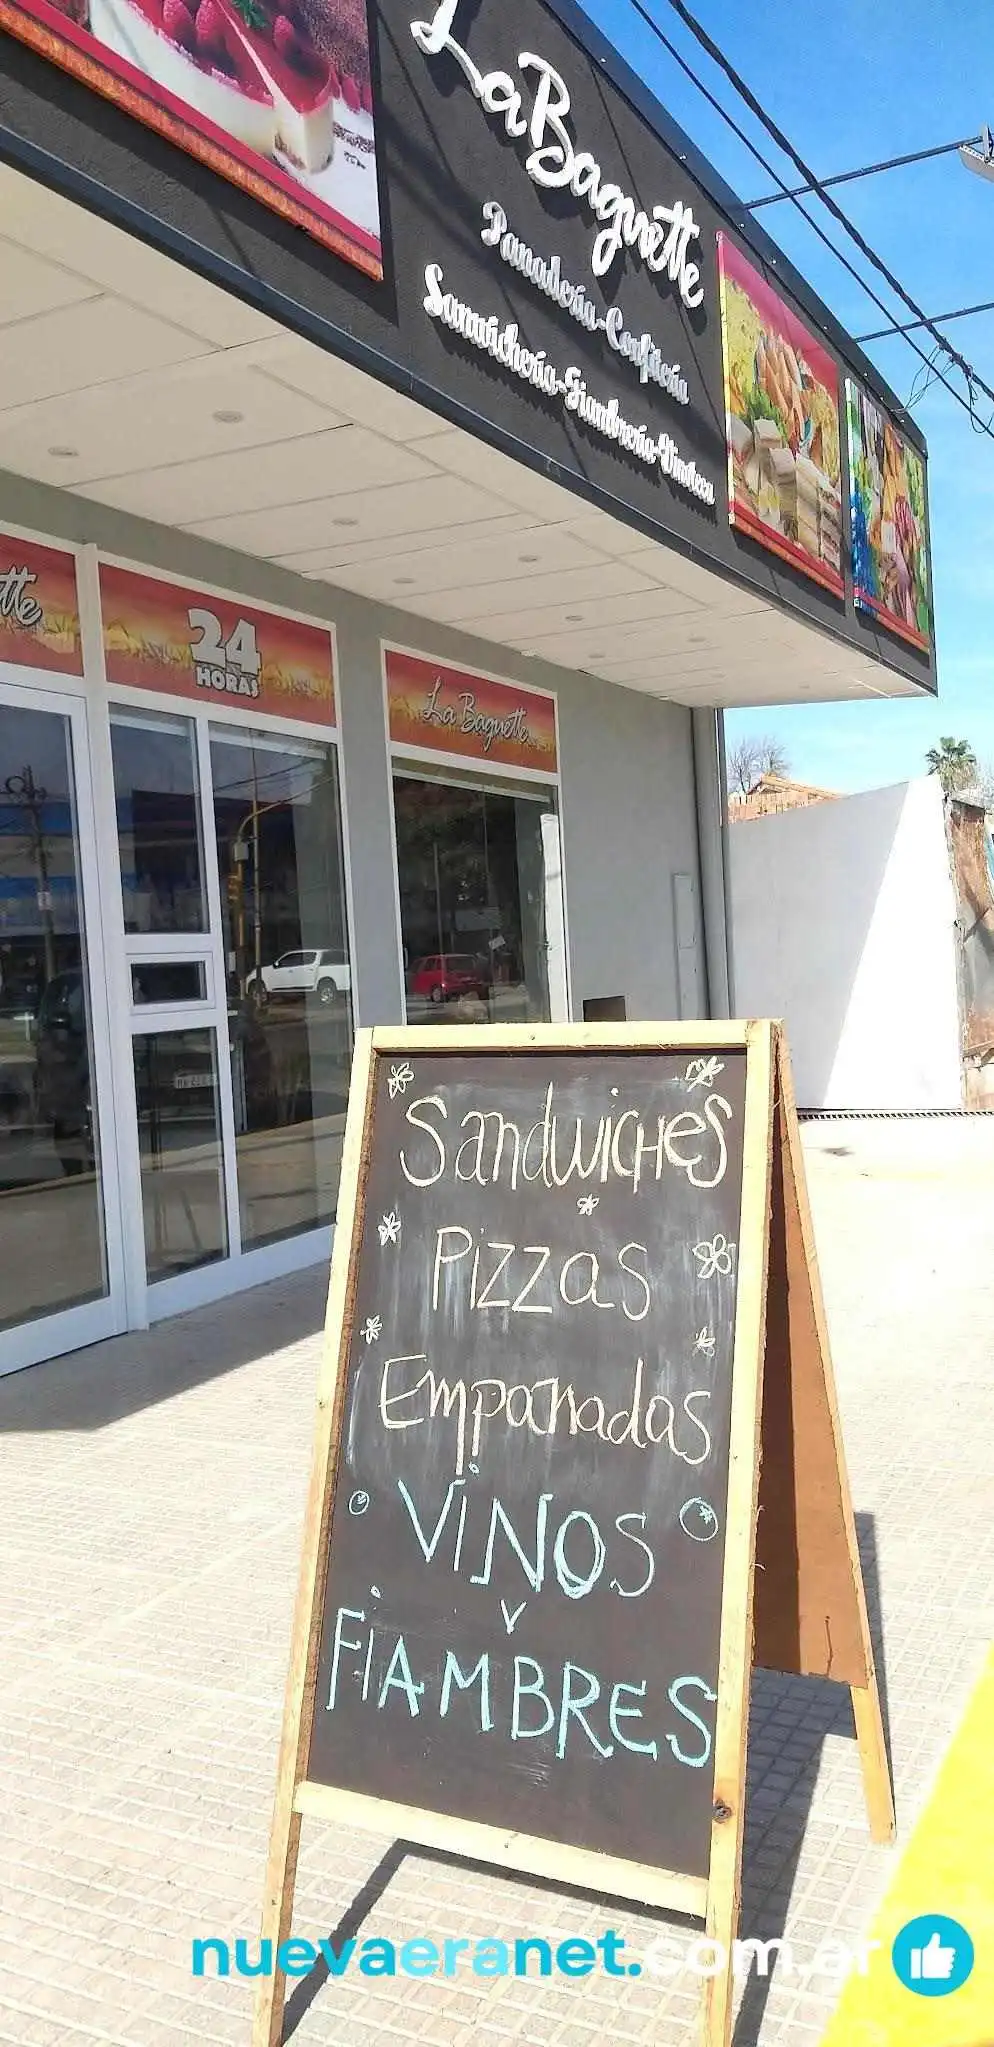 La Baguette
Panadería-Confitería
Sanwichería-Fiambrería-Vinoteca
tte
24
HORAS
La Baguette
Sandwiches
Pizzas
Empanadas
ViNOS
Y
FiAMBRES
nuevaeranet.com.ar